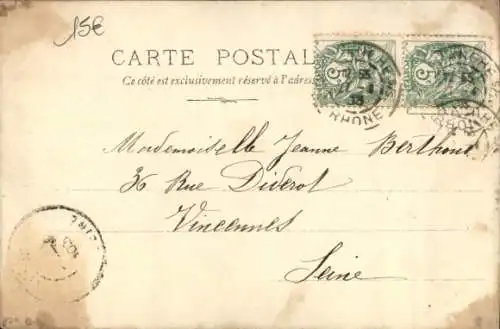 15€
CARTE POSTALE
Ce côté est exclusivement réservé à l'adresse
5 5
RHÔNE
Mademoiselle Jeanne Berthoud
36 Rue Diderot
Vincennes
Seine